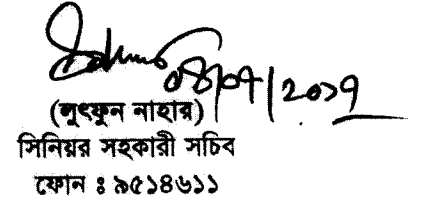 ০৪/০৭/২০১৭
(লুৎফুন নাহার)
সিনিয়র সহকারী সচিব
ফোন ঃ ৯৫১৪৬১১